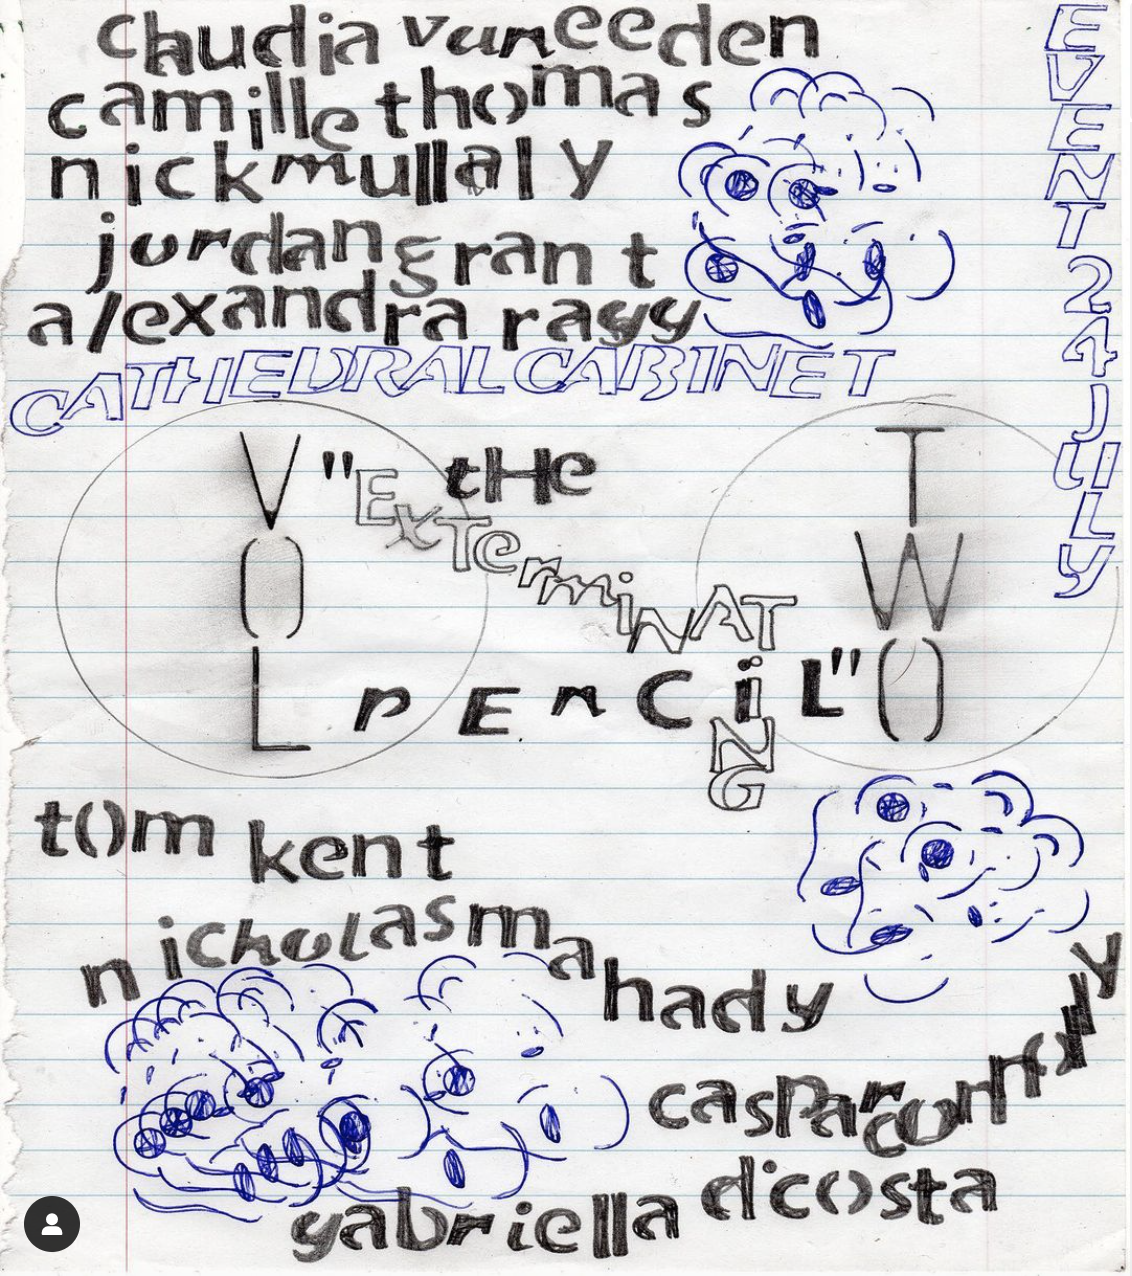 claudia vaneeden
camille thomas
nick mullaly
jordan grant
alexandra ragg
CATHEDRAL CABINET
EVENT 24 JULY
VOL
TWO
"the
ExterminATiNG
PEnCiL"
tom kent
nicholas mahady
caspar connolly
gabriella d'costa